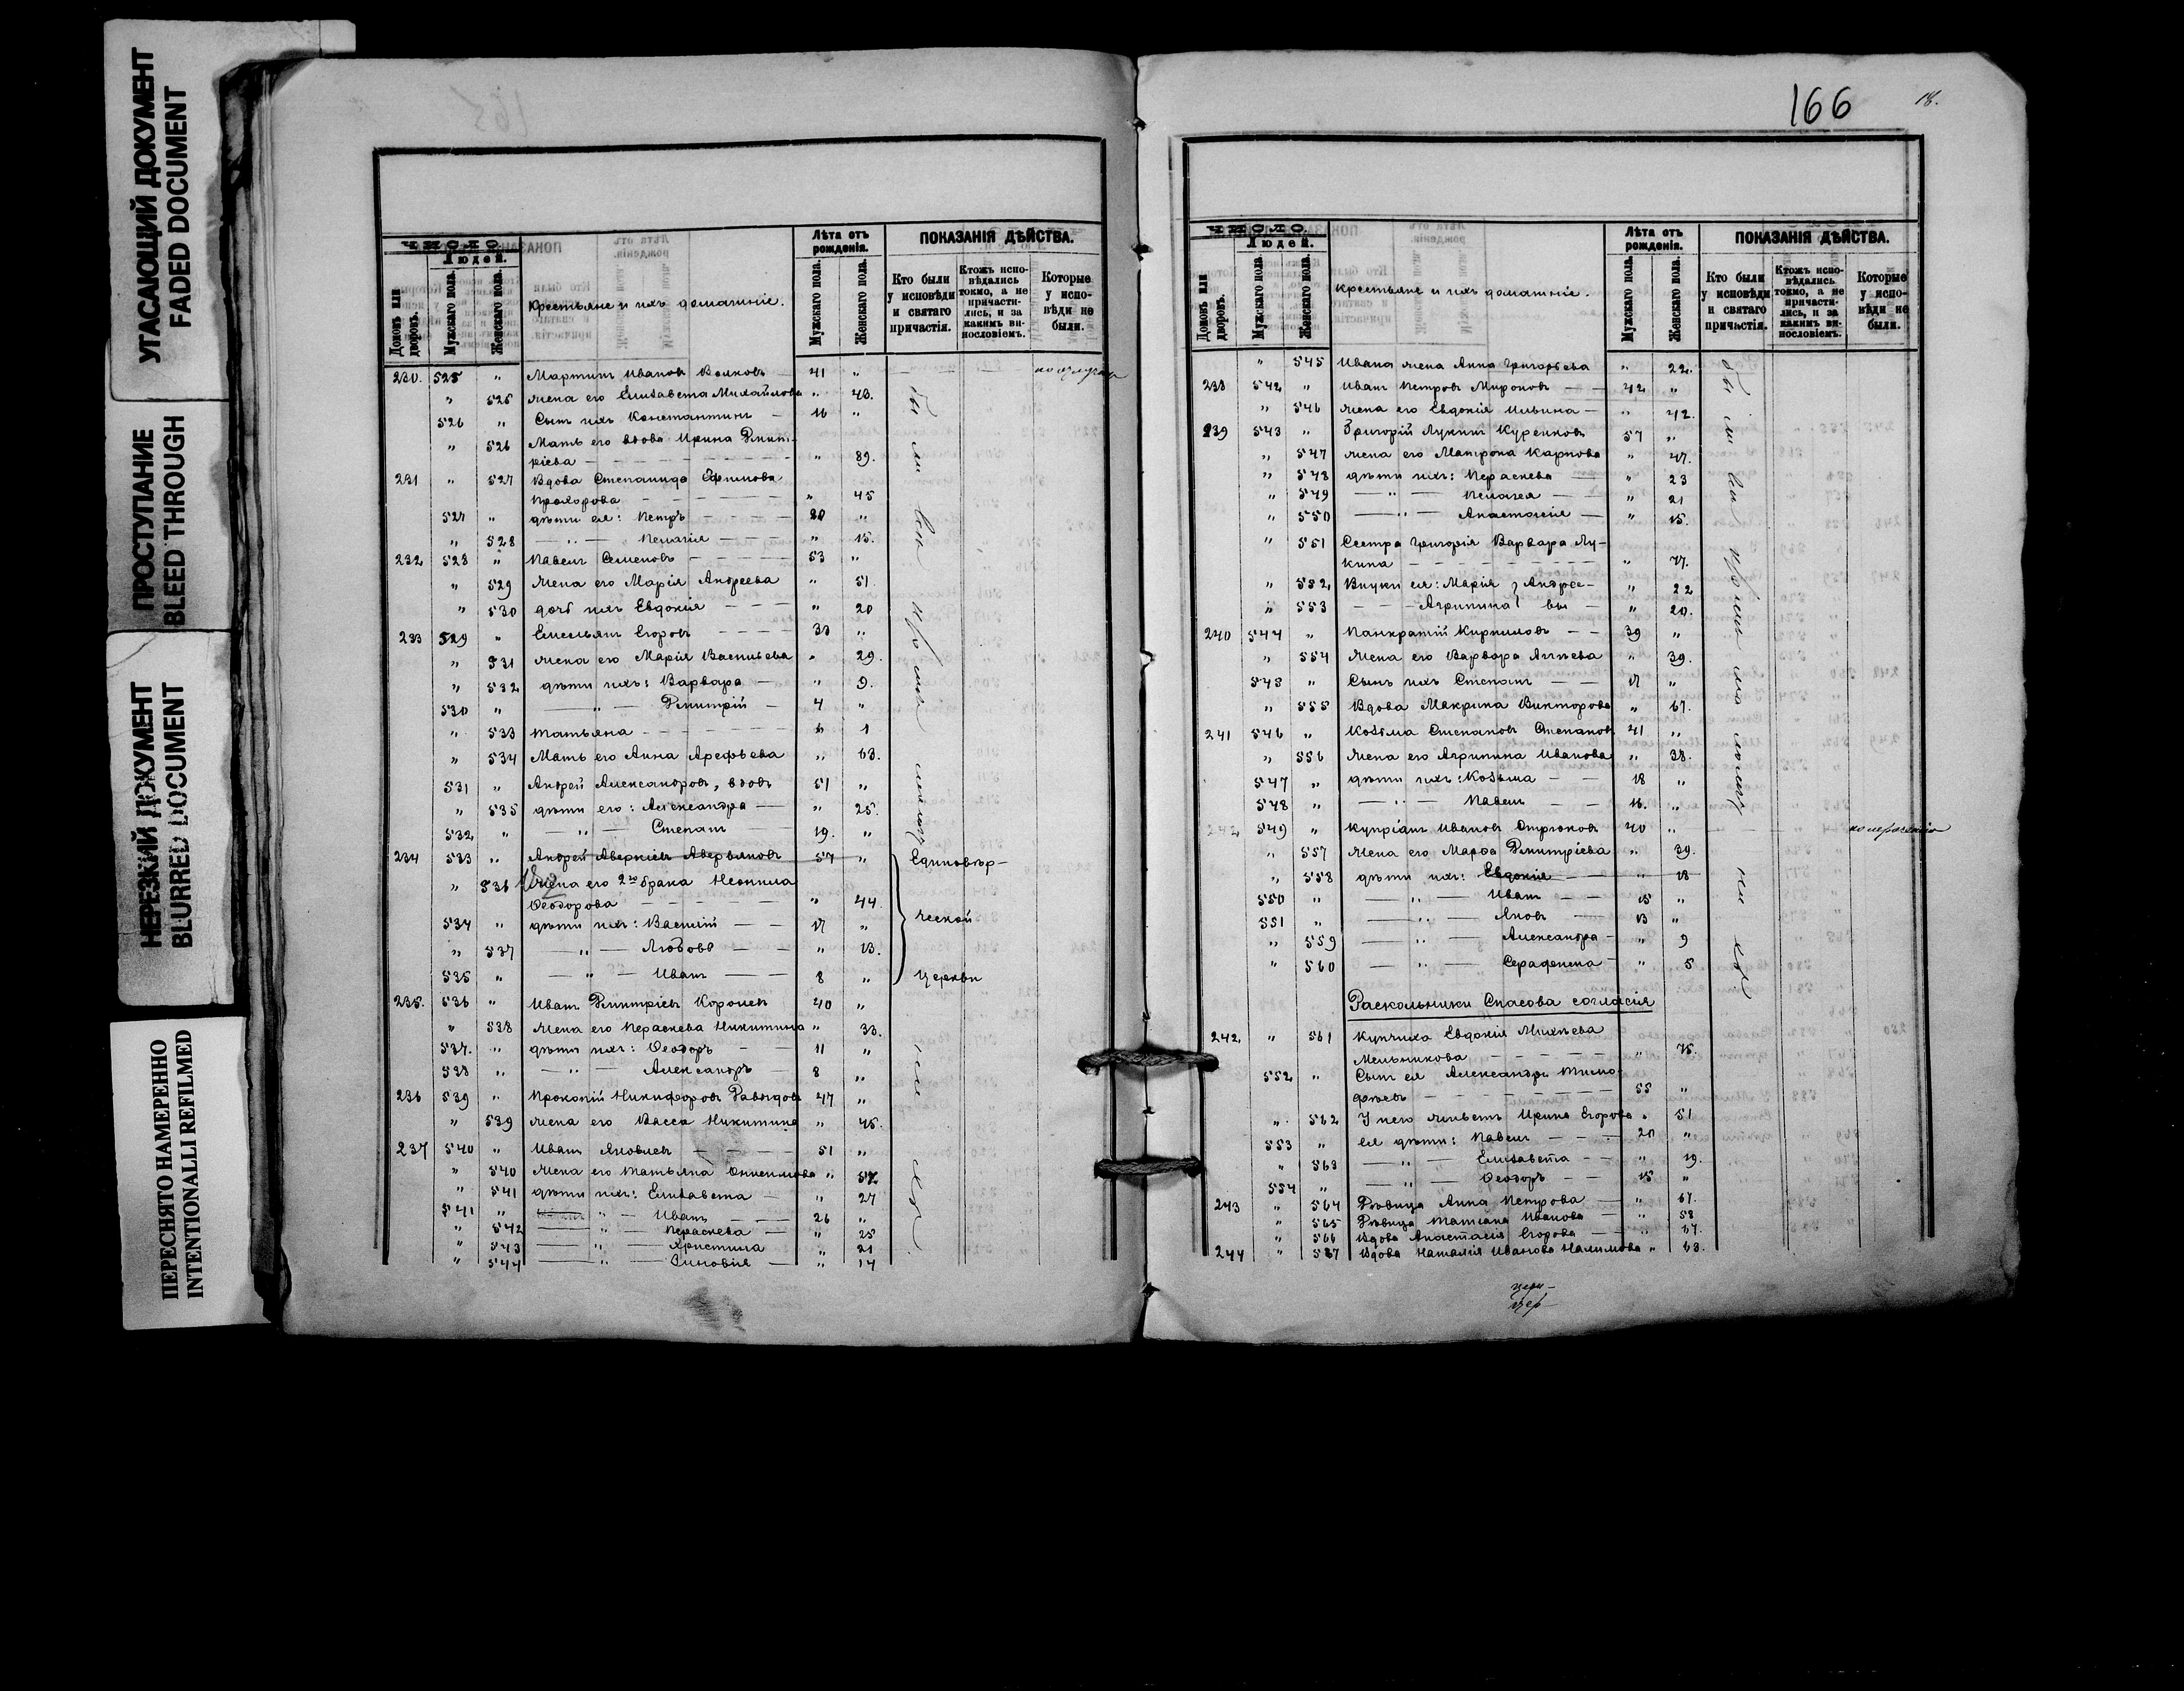 УГАСАЮЩИЙ ДОКУМЕНТ
FADED DOCUMENT
ПРОСТУПАНИЕ
BLEED THROUGH
НЕРЕЗКИЙ ДОКУМЕНТ
BLURRED DOCUMENT
ПЕРЕСНЯТО НАМЕРЕННО
INTENTIONALLI REFILMED
ЧИСЛО.
Людей.
Домовъ или дворовъ.
Мужскаго пола.
Женскаго пола.
Крестьяне и ихъ домашніе.
Лѣта отъ рожденія.
Мужскаго пола.
Женскаго пола.
ПОКАЗАНІЯ ДѢЙСТВА.
Кто были у исповѣди и святаго причастія.
Ктожъ исповѣдались токмо, а не причастились, и за какимъ винословіемъ.
Которые у исповѣди не были.
230. 525 " Мартинъ Ивановъ Волковъ — 41 "
" 525 Жена его Елизавета Михайлова " 43.
526 " Сынъ ихъ Константинъ — 16 "
" 526 Мать его вдова Ирина Дмит-
ріева — " 89.
231 " 527 Вдова Степанида Ефимова
Прохорова — " 45
527 " дѣти ея: Петръ — 20 "
" 528 — " — Пелагія — " 15.
232 528 " Павелъ Семеновъ — 53 "
" 529 Жена его Марія Андреева " 51.
" 530 дочь ихъ Евдокія — " 20
233 529 " Емельянъ Егоровъ — 33 "
" 531 Жена его Марія Васильева " 29.
" 532 дѣти ихъ: Варвара — " 9.
530 " — " — Дмитрій — 4 "
" 533 Татьяна — " 1
" 534 Мать его Анна Арефьева " 63.
531 " Андрей Александровъ, вдовъ 51 "
" 535 дѣти его: Александра — " 25.
532 " — " — Степанъ — 19. "
234 533 " Андрей Аверкіевъ Аверьяновъ 57 " Единовѣр-
" 536 Жена его 2го брака Неонила
Ѳеодорова — " 44.
534 " дѣти ихъ: Василій — 17 " ческой
" 537 — " — Любовь — " 13.
535 " — " — Иванъ — 8 " Церкви
235. 536 " Иванъ Дмитріевъ Королев 40 "
" 538 Жена его Параскева Никитина " 33.
537. " дѣти ихъ: Ѳеодоръ — 11 "
538 " — " — Александръ — 8 "
236 539 " Прокопій Никифоровъ Давыдовъ 47 "
" 539 Жена его Васса Никитина " 45.
237 540 " Иванъ Яковлевъ — 51 "
" 540 Жена его Татьяна Онисимова " 52
" 541 дѣти ихъ: Елизавета — " 27
541 " — " — Иванъ — 26 "
" 542 — " — Параскева — " 25
" 543 — " — Христина " 21
" 544 — " — Зиновія — " 14
166
18.
ЧИСЛО.
Людей.
Домовъ или дворовъ.
Мужскаго пола.
Женскаго пола.
Крестьяне и ихъ домашніе.
Лѣта отъ рожденія.
Мужскаго пола.
Женскаго пола.
ПОКАЗАНІЯ ДѢЙСТВА.
Кто были у исповѣди и святаго причастія.
Ктожъ исповѣдались токмо, а не причастились, и за какимъ винословіемъ.
Которые у исповѣди не были.
" 545 Ивана жена Анна Григорьева " 22.
238 542 " Иванъ Петровъ Мироновъ — 42 "
" 546 Жена его Евдокія Ильина — " 42.
239 543 " Григорій Лукинъ Куренковъ 57 "
" 547 Жена его Матрона Карпова " 47.
" 548 дѣти ихъ: Параскева — " 23
" 549 — " — Пелагея — " 21
" 550 — " — Анастасія — " 15.
" 551 Сестра Григорія Варвара Лу-
кина — " 77.
" 552 Внуки ея: Марія } Андрее- " 22
" 553 — Агрипина } вы — " 20.
240 544 " Панкратій Кириловъ — 39 "
" 554 Жена его Варвара Агѣева " 39.
545 " Сынъ ихъ Степанъ — 17 "
" 555 Вдова Макрина Викторова " 67.
241 546 " Козьма Степановъ Степановъ 41 "
" 556 Жена его Агрипина Иванова " 38.
547 " дѣти ихъ: Козьма — 18 "
548 " — " — Павелъ — 16. "
242 549 " Купріанъ Ивановъ Стрюковъ 40 "
" 557 Жена его Марѳа Дмитріева " 39.
" 558 дѣти ихъ: Евдокія — " 18
550 " — " — Иванъ — 15 "
551 " — " — Яковъ — 13 "
" 559 — " — Александра — " 9
" 560 — " — Серафима — " 5
Раскольники Спасова согласія
242. " 561 Купчиха Евдокія Михѣева
Мельникова — " 75.
552 " Сынъ ея Александръ Тимо-
фѣевъ — 55 "
" 562 У него живетъ Ирина Егорова " 51
553 " Ея дѣти: Павелъ — 20 "
" 563 — " — Елизавета — " 19.
554 " — " — Ѳеодоръ — 15 "
243 " 564 Дѣвица Анна Петрова — " 67.
" 565 Дѣвица Татіана Иванова — " 58
" 566 Вдова Анастасія Егорова — " 67.
244 " 567 Вдова Наталія Иванова Налимова " 63.